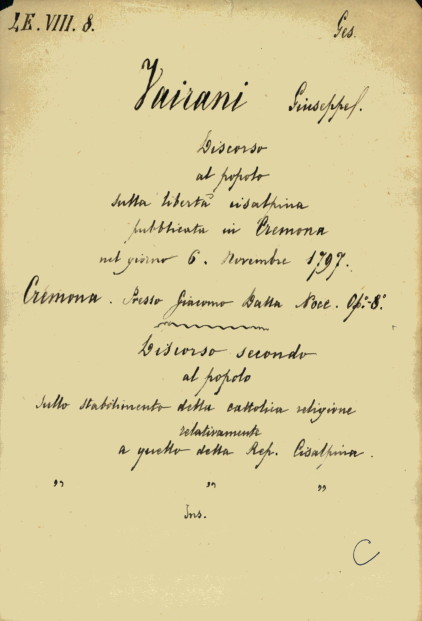 LE. VIII. 8. Ges.
Vairani Giuseppe.
Discorso
al popolo
sulla libertà cisalpina
pubblicata in Cremona
nel giorno 6. Novembre 1797.
Cremona. Presso Giacomo Dalla Noce. Op.-8°
Discorso secondo
al popolo
sullo stabilimento della cattolica religione
relativamente
a quello della Rep. Cisalpina.
" " "
Ins.
C